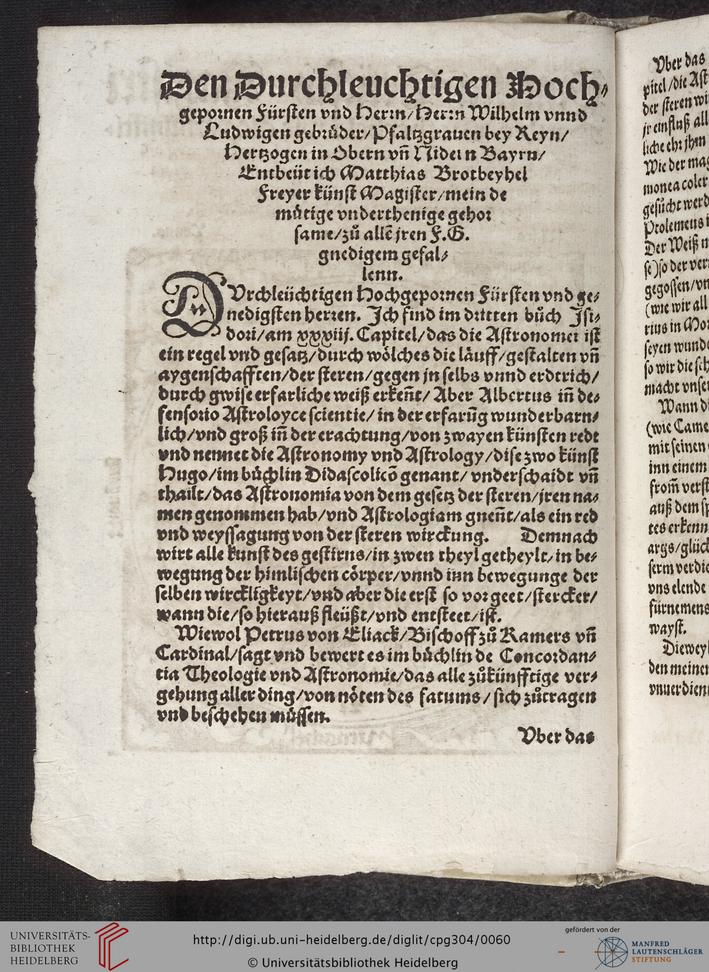 Den Durchleuchtigen Hoch⸗
gepornen Fürsten vnd Herrn/Herrn Wilhelm vnnd
Ludwigen gebrůder/Pfaltzgrauen bey Reyn/
Hertzogen in Obern vñ Nidern Bayrn/
Entbeüt ich Matthias Brotbeyhel
Freyer künst Magister/mein de
můtige vnderthenige gehor
same/zů allẽ jren F.G.
gnedigem gefal⸗
lenn.
DVrchleüchtigen Hochgepornen Fürsten vnd ge⸗
nedigsten herren. Ich find im dritten bůch Isi⸗
dori/am xxxiij. Capitel/das die Astronomei ist
ein regel vnd gesatz/durch wölches die läuff/gestalten vñ
aygenschafften/der steren/gegen jn selbs vnnd erdtrich/
durch gwise erfarliche weiß erkeñt/ Aber Albertus iñ de⸗
fensorio Astroloyce scientie/ in der erfarũg wunderbarn⸗
lich/vnd groß iñ der erachtung/von zwayen künsten redt
vnd nennet die Astronomy vnd Astrology/dise zwo künst
Hugo/im bůchlin Didascolicõ genant/ vnderschaidt vñ
thailt/das Astronomia von dem gesetz der steren/jren na⸗
men genommen hab/vnd Astrologiam gneñt/als ein red
vnd weyssagung von der steren wirckung. Demnach
wirt alle kunst des gestirns/in zwen theyl getheylt/in be⸗
wegung der himlischen cörper/vnnd inn bewegunge der
selben wirckligkeyt/vnd aber die erst so vor geet/stercker/
wann die/so hierauß fleüßt/vnd entsteet/ist.
Wiewol Petrus von Eliack/Bischoff zů Kamers vñ
Cardinal/sagt vnd bewert es im bůchlin de Concordan⸗
tia Theologie vnd Astronomie/das alle zůkünfftige ver⸗
gehung aller ding/von nöten des fatums/sich zůtragen
vnd beschehen müssen.
Vber das
Vber das
pitel/die Ast
der steren wi
jr einfluß all
liche ehr jhm
Wie der mag
monea coler
gesücht werd
Ptolemeus i
Der Weiß m
se)so der ver
gegossen/vn
(wie wir all
rius in Mor
seyen wund
so wir die sch
macht vnser
Wann di
(wie Came
mit seinen
inn einem
from̃ verst
auß dem sp
tes erkenn
args/glück
serm verdie
vns elende
fürnemens
wayst.
Dieweyl
den meinen
vnuerdien
UNIVERSITÄTS-
BIBLIOTHEK
HEIDELBERG
http://digi.ub.uni-heidelberg.de/diglit/cpg304/0060
© Universitätsbibliothek Heidelberg
gefördert von der
MANFRED
LAUTENSCHLÄGER
STIFTUNG